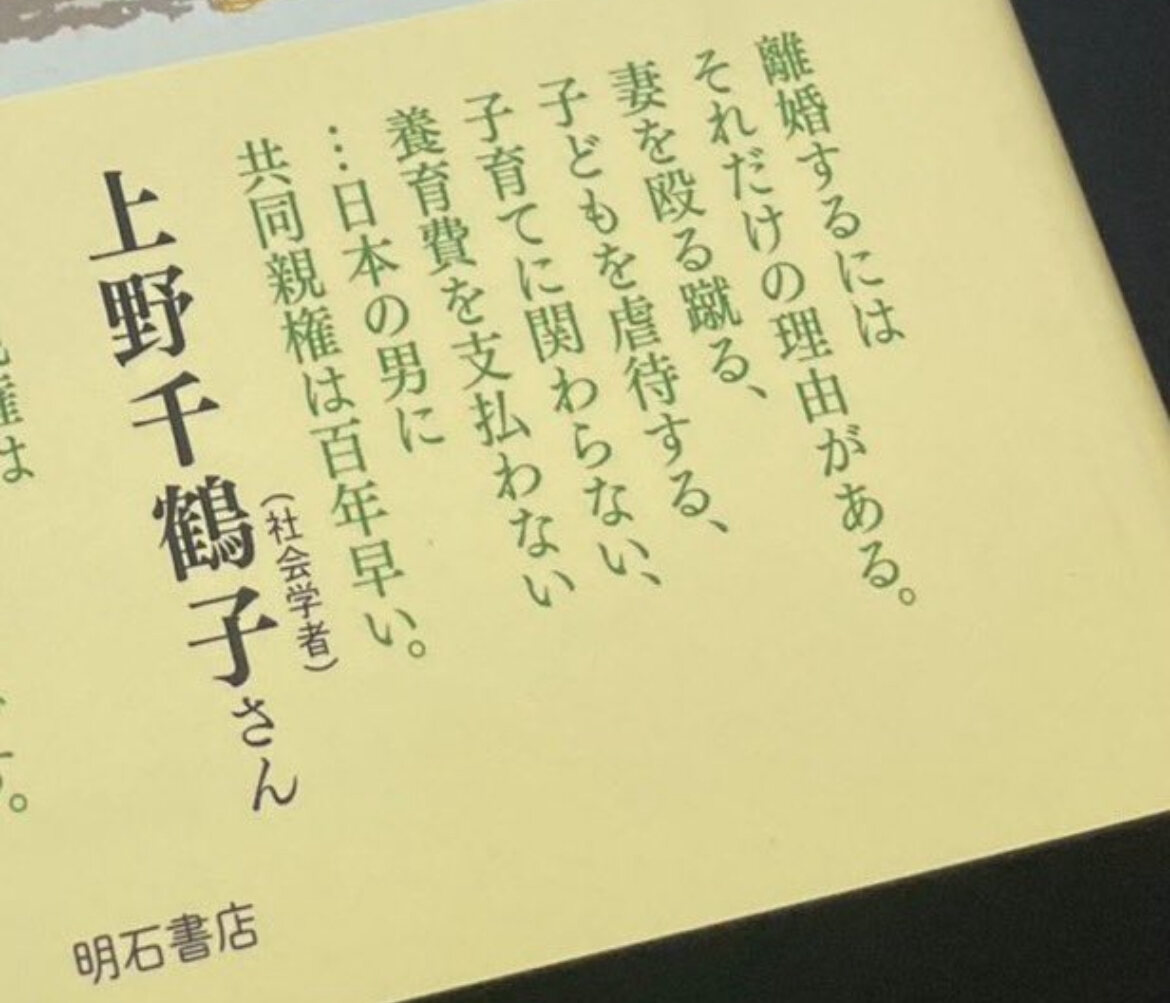 離婚するには
それだけの理由がある。
妻を殴る蹴る、
子どもを虐待する、
子育てに関わらない、
養育費を支払わない
…日本の男に
共同親権は百年早い。
上野千鶴子さん
(社会学者)
権は
す。
明石書店